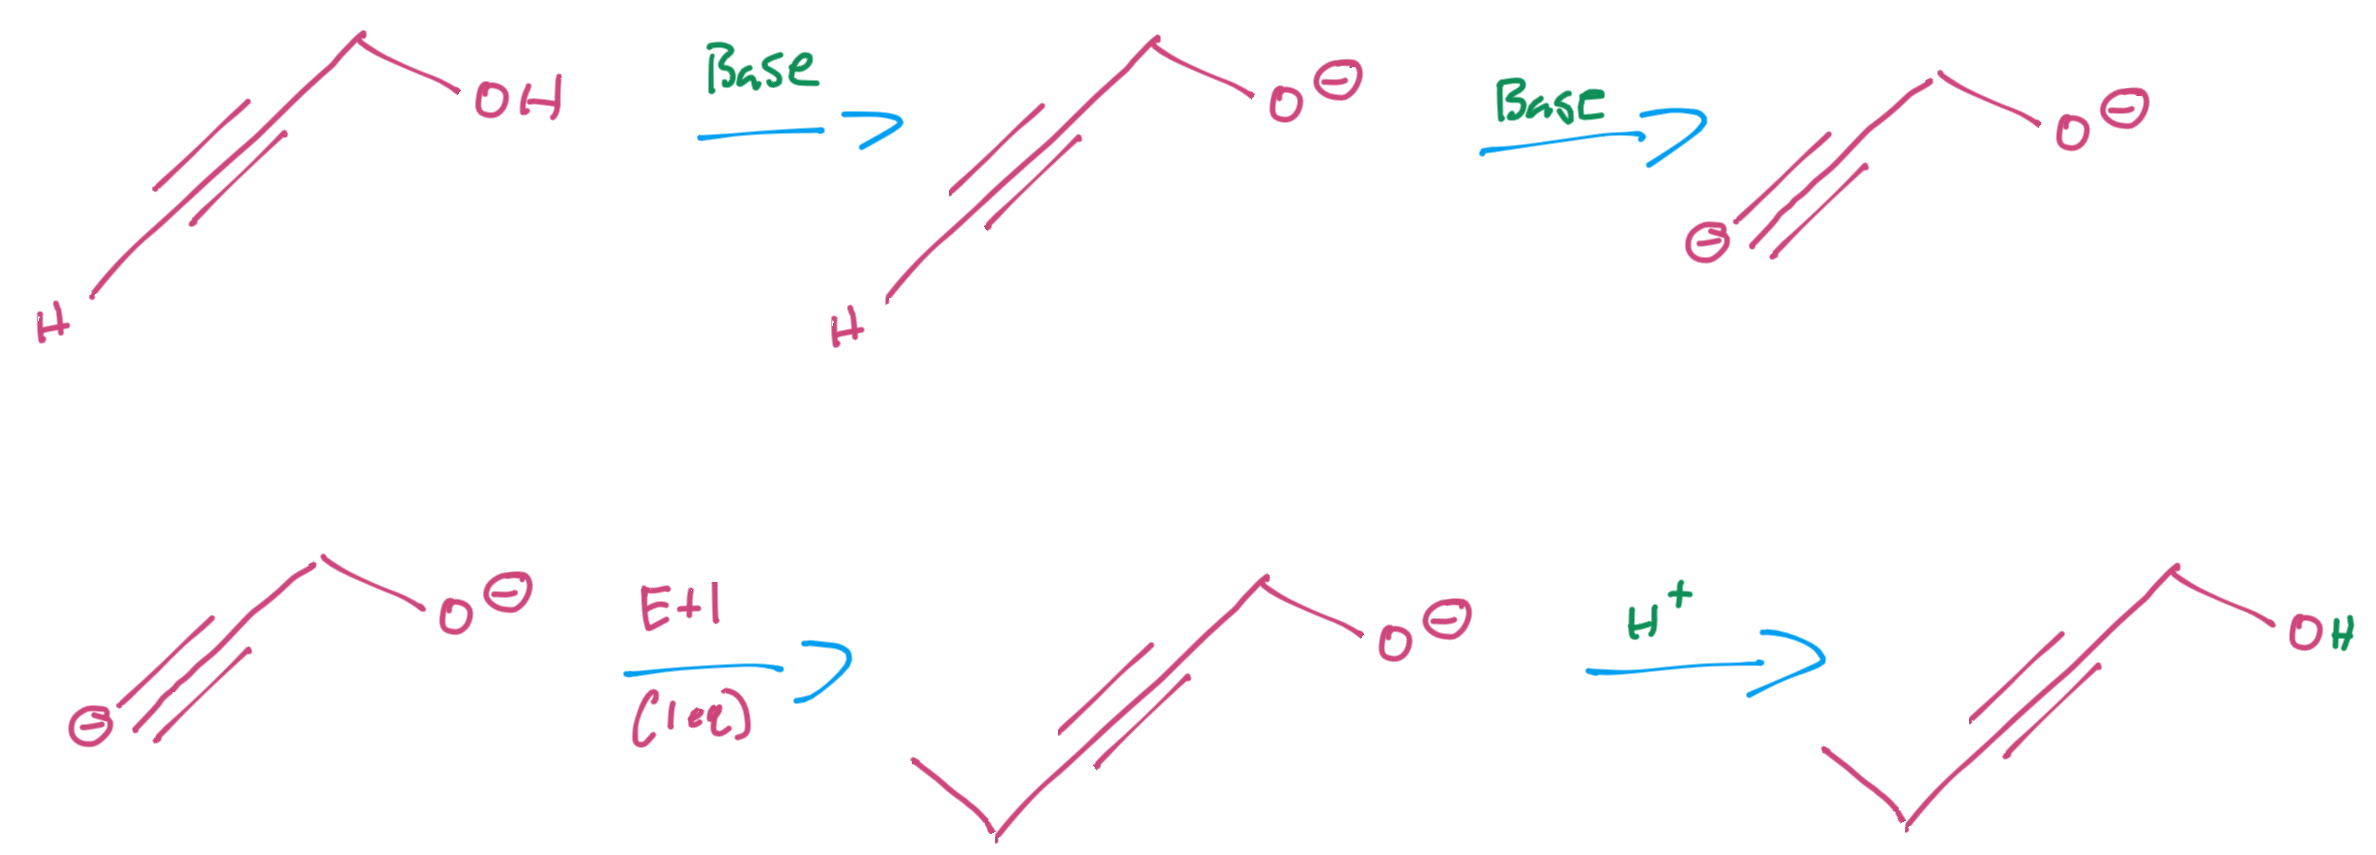 OH
Base
O⊖
Base
O⊖
⊖
H
H
O⊖
EtI
(1eq)
O⊖
H+
OH
⊖